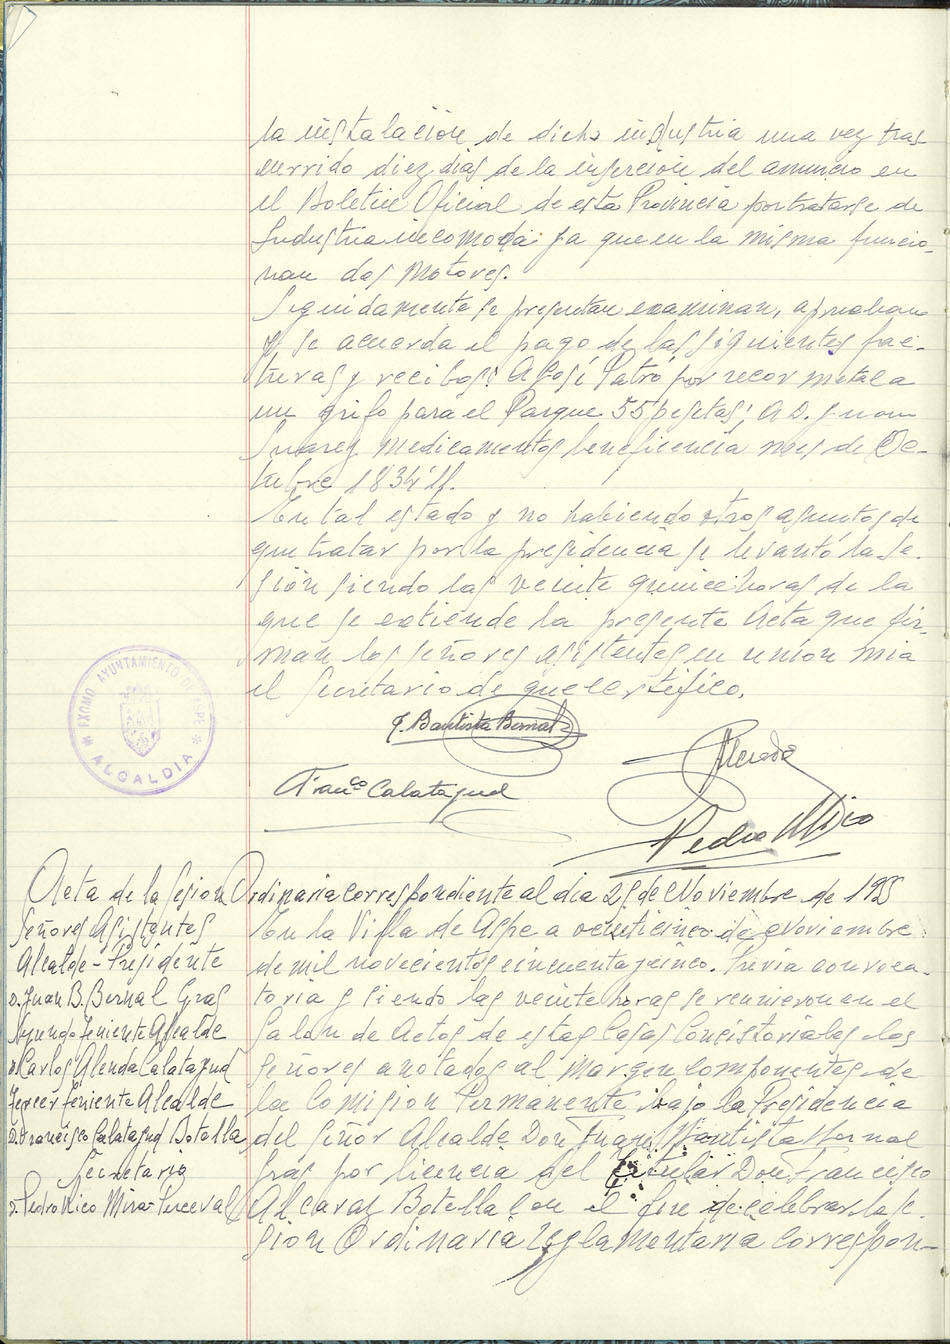 la instalación de dicha industria una vez tras-
currido diez días de la inserción del anuncio en
el Boletin Oficial de esta Provincia por tratarse de
Industria incomoda: ya que en la misma funcio-
nan dos Motores.
Seguidamente se presentan examinan, aprueban
y se acuerda el pago de las siguientes fac-
turas y recibos: A José Patró por
un grifo para el Parque 55 pesetas; A D. Juan
Suarez Medicamentos beneficencia mes de Oc-
tubre 1834'11.
En tal estado y no habiendo otros asuntos de
que tratar por la presidencia se levantó la se-
sión siendo las veinte quince horas de la
que se extiende la presente Acta que fir-
man los señores asistentes en union mia
el Secretario de que certifico.
J. Bautista Bernal
Alenda
Franco Calatayud
Pedro Mico
EXCMO AYUNTAMIENTO DE ASPE
ALCALDIA
Acta de la Sesion Ordinaria correspondiente al dia 25 de Noviembre de 195
Señores Asistentes
Alcalde-Presidente
D. Juan B. Bernal Gras
Segundo Teniente Alcalde
D. Carlos Alenda Calatayud
Tercer Teniente Alcalde
D. Francisco Calatayud Botella
Secretario
D. Pedro Mico Mira-Perceval
En la Villa de Aspe a veinticinco de Noviembre
de mil novecientos cincuenta y cinco. Previa convoca-
toria y siendo las veinte horas se reunieron en el
Salon de Actos de estas Casas Consistoriales los
Señores anotados al margen componentes de
la Comision Permanente bajo la Presidencia
del Señor Alcalde Don Juan Bautista Bernal
Gras por licencia del titular Don Francisco
Alcaraz Botella con el fin de celebrar la se-
sion Ordinaria reglamentaria correspon-